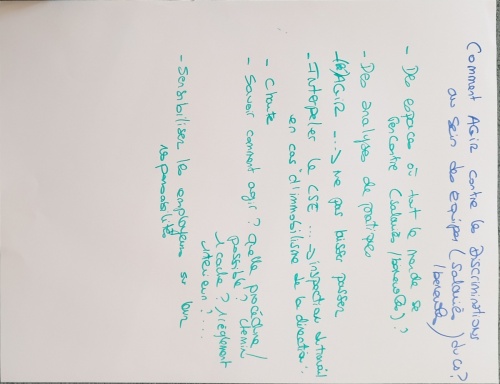 Comment AGIR contre les Discriminations
au sein des équipes (salariés/bénévoles) du CS?
- Des espaces où tout le monde se
rencontre (salariés/bénévoles)?
- Des analyses de pratiques
- (Ré)AGIR ...→ ne pas laisser passer
- Interpeler le CSE ...→ inspection du travail
en cas d'immobilisme de la direction.
- Charte
- Savoir comment agir? Quelle procédure/
possible? chemin
1 cadre? 1 règlement
intérieur? ...
- Sensibiliser les employeurs sur leur
responsabilité